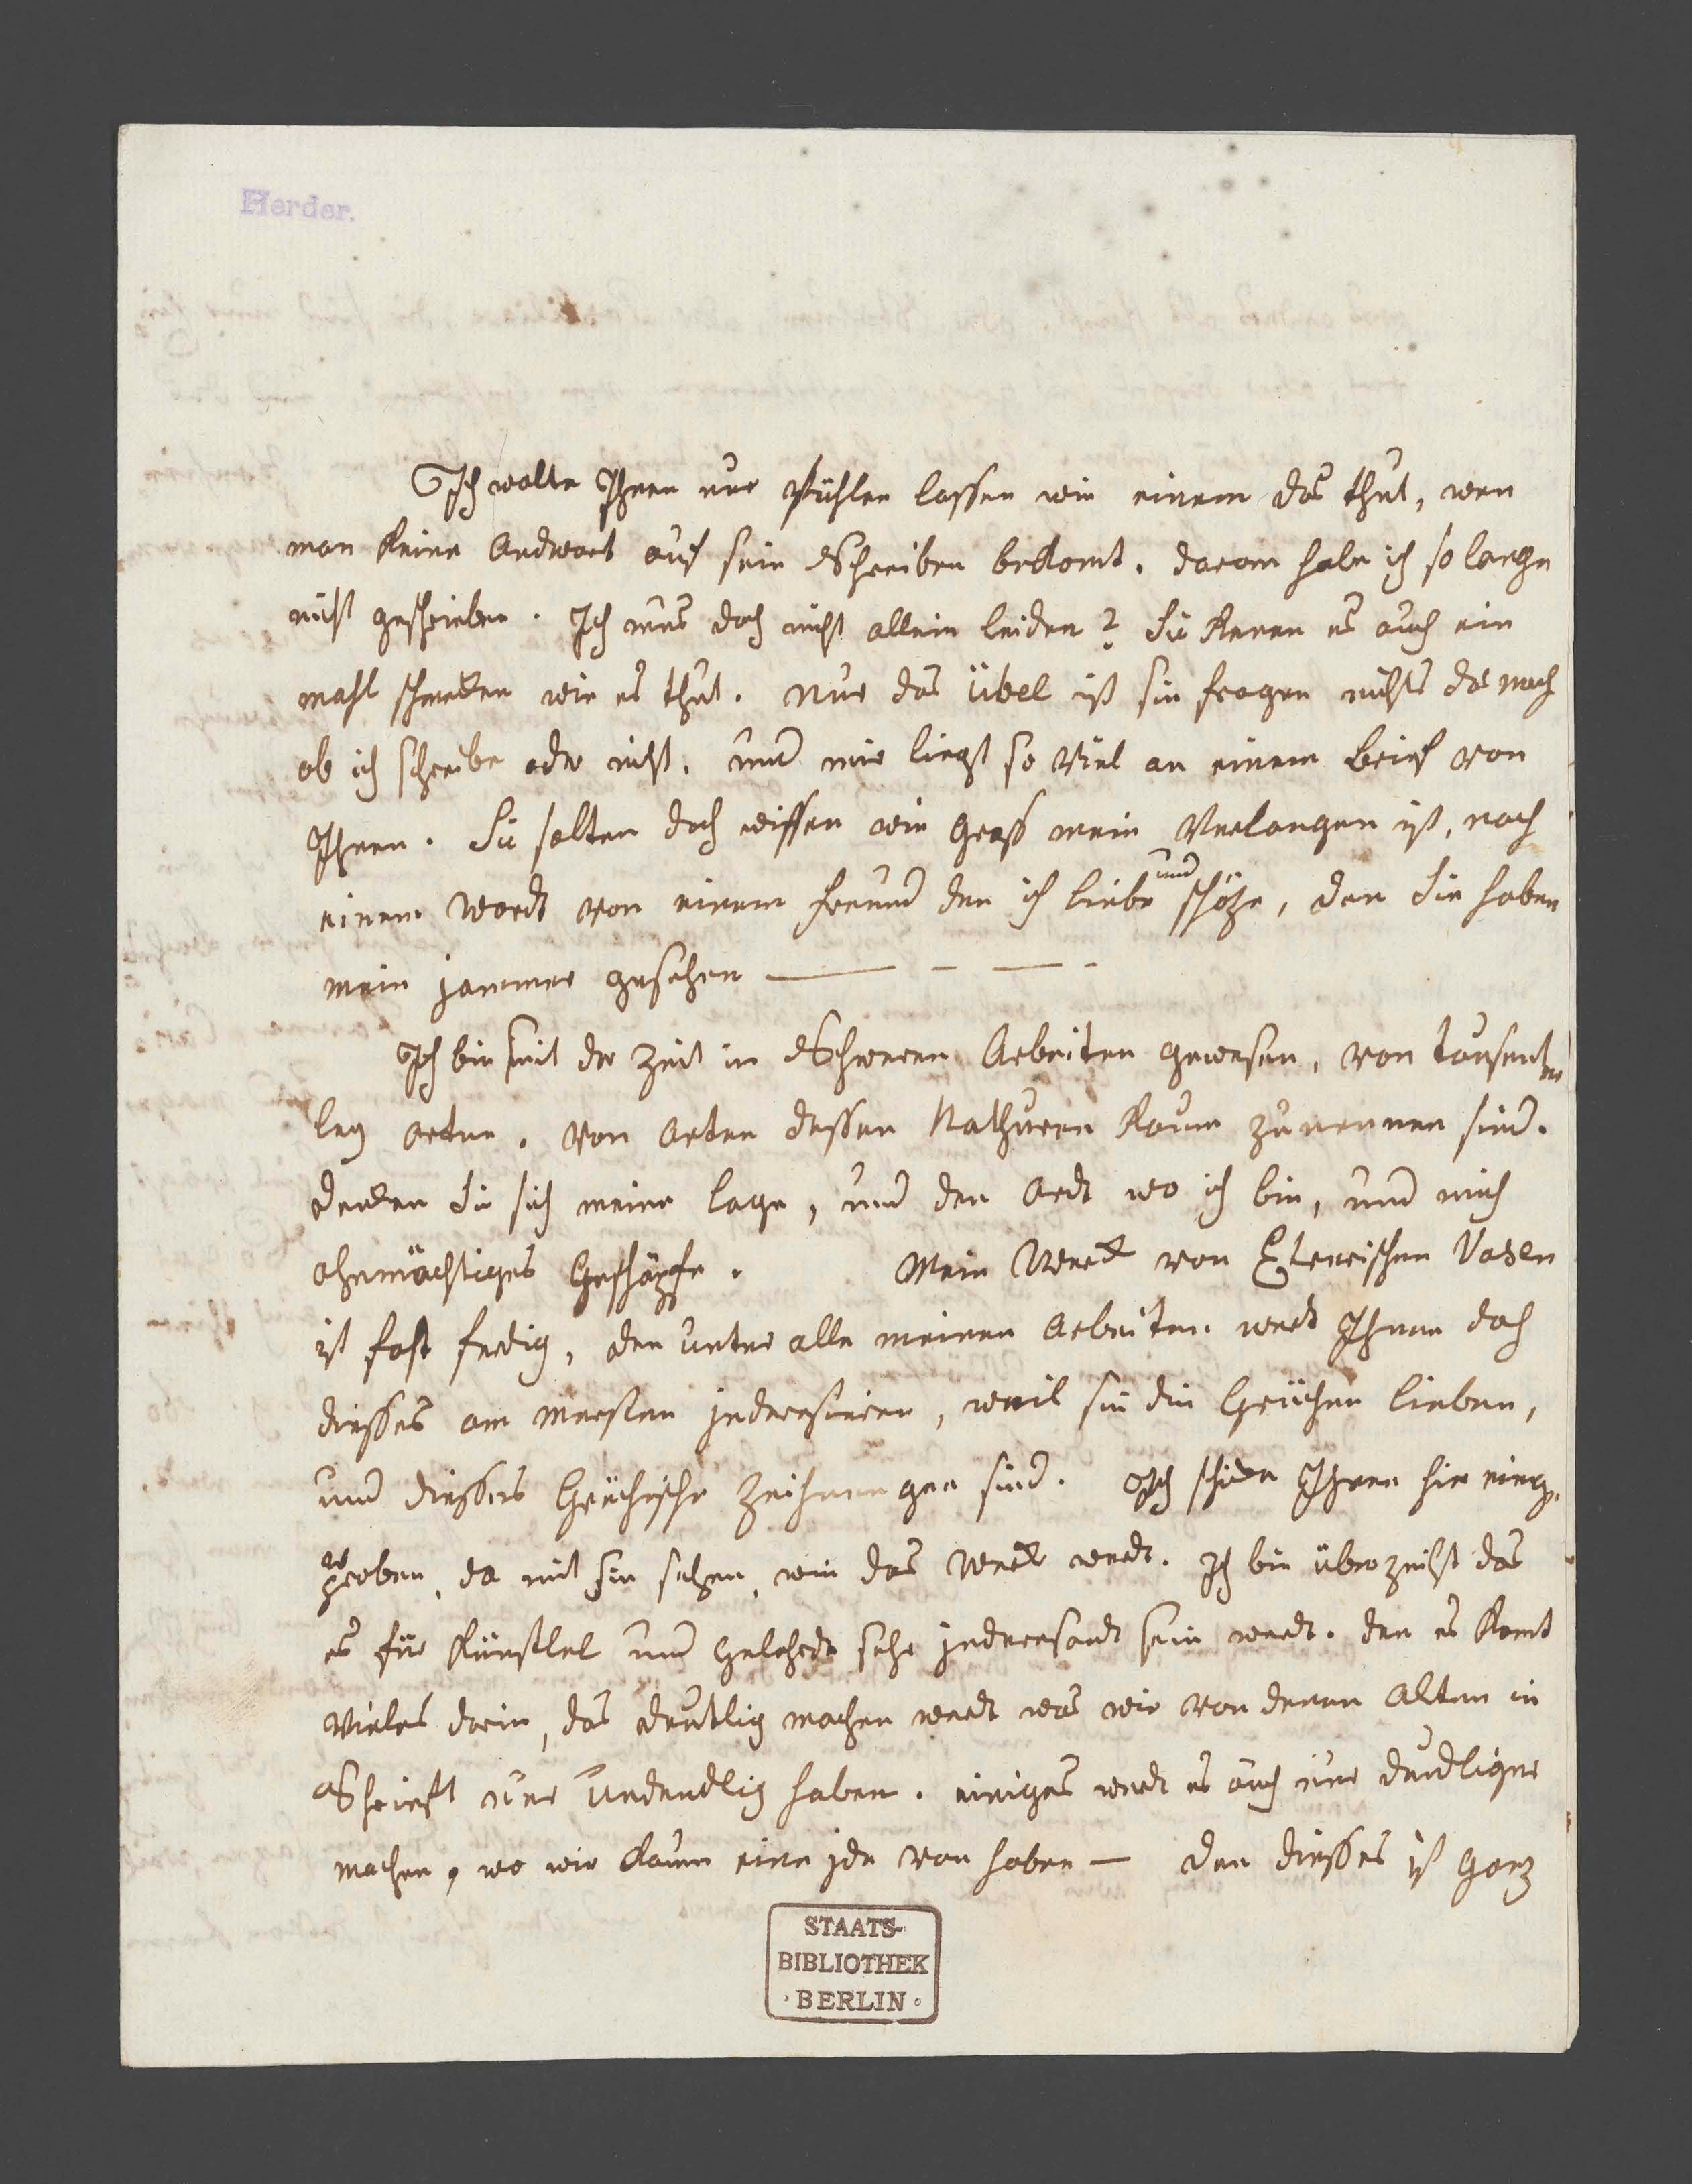 Herder.
Ich wolte Ihnen nur fühlen lassen wie einem das thut, wen
man keine Andword auf sein Schreiben bekomt. darom habe ich so lange
nicht geschrieben. Ich mus doch nicht allein leiden? Sie kenen es auch ein
mahl schmeken wie es thut. Nur das übel ist sie fragen nichts da nach
ob ich schreibe oder nicht. und mir liegt so viel an einem Brief von
Ihnen. Sie solten doch wissen wie gross mein Verlangen ist, nach
einem Wordt von einem freund den ich liebe und schäze, den Sie haben
mein jammer gesehen — - — -
Ich bin seit der Zeit in Schweren Arbeiten gewesen, von tausent
ley arten. von arten dessen Nathuren kaum zu nennen sind.
denken Sie sich meine lage, und den Ordt wo ich bin, und mich
ohnmächtiges Geschöpfe. Mein Werck von Eterrischen Vasen
ist fast ferdig, den unter alle meinen Arbeiten werdt Ihnen doch
diesses am mersten jnderesiren, weil sie die Grichen lieben,
und diesses Grichische Zeichnungen sind. Ich schike Ihnen hie einge
proben, da mit sie sehen, wie das Werck werdt. Ich bin überzeihst das
es für Künstlel und Gelehrde sehr jnderesandt sein werdt. den es komt
vieles drein, das deutlig machen werdt was wir von denen Alten in
Schrieft nur undeudlig haben. einiges werdt es auch nur deudliger
machen, wo wir kaum eine jde von haben — den diesses ist ganz
STAATS-
BIBLIOTHEK
· BERLIN ·